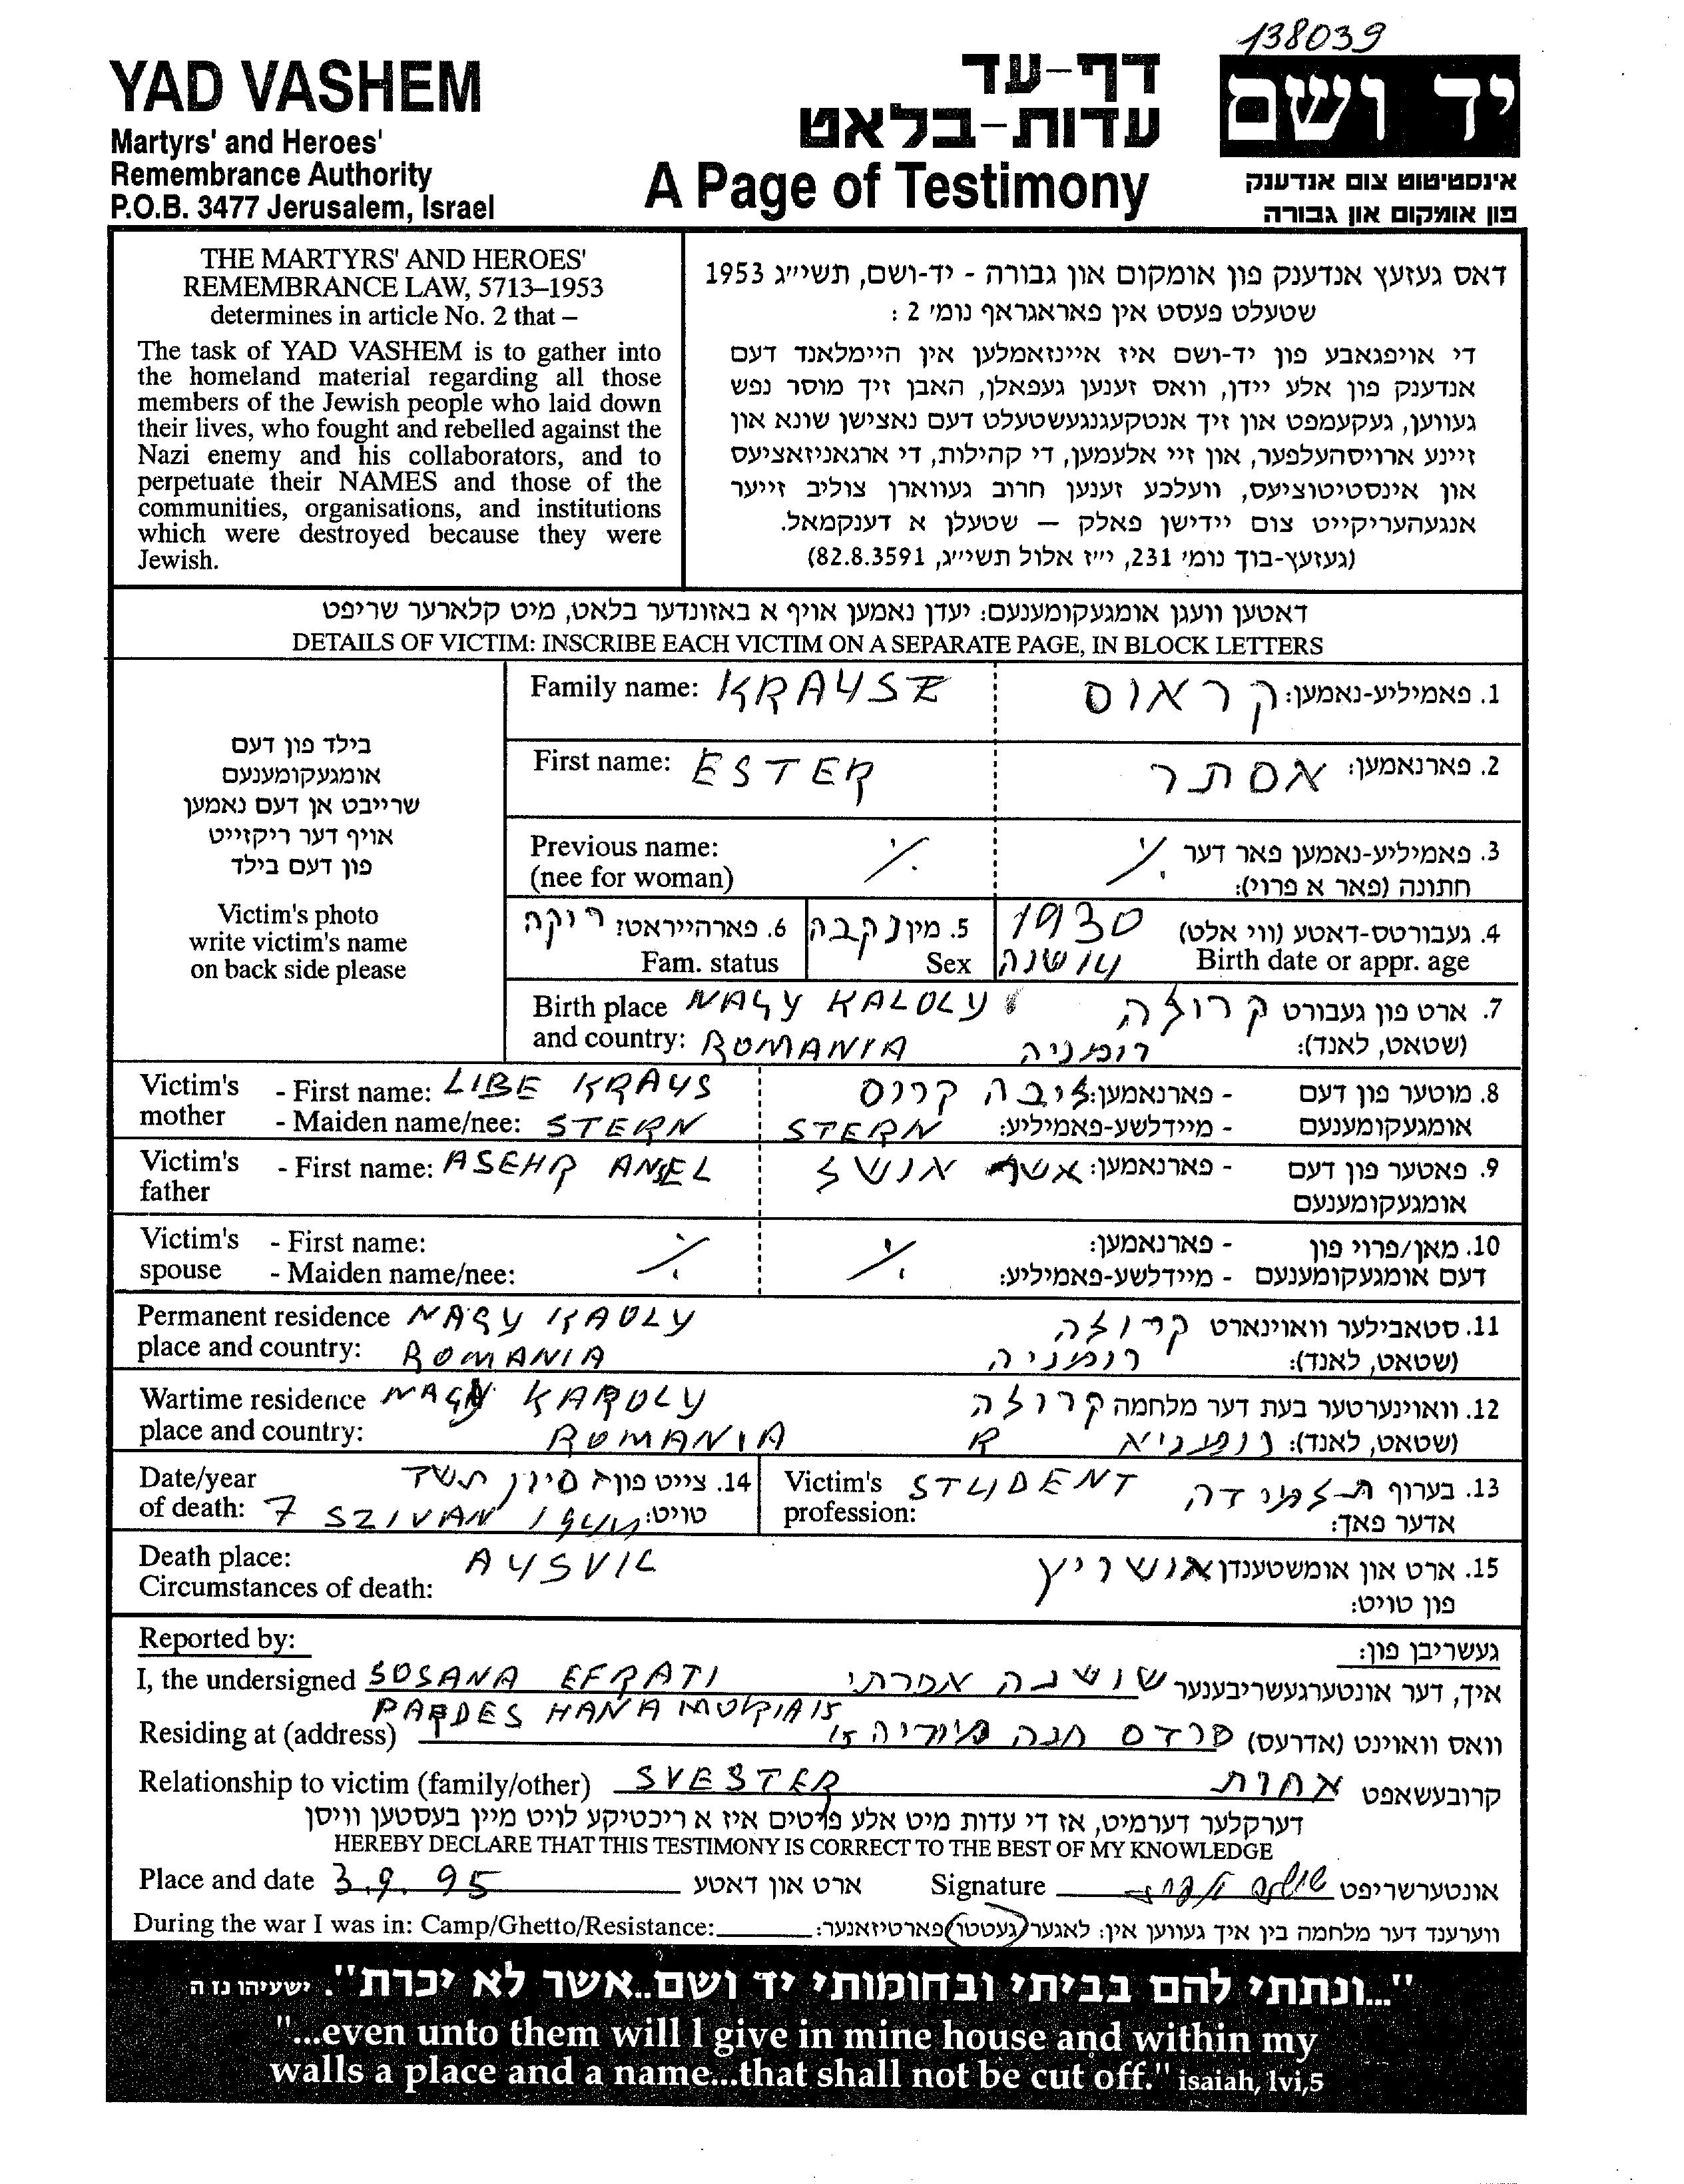 138039
YAD VASHEM
Martyrs' and Heroes'
Remembrance Authority
P.O.B. 3477 Jerusalem, Israel
דף-עד
עדות-בלאט
A Page of Testimony
יד ושם
אינסטיטוט צום אנדענק
פון אומקום און גבורה
THE MARTYRS' AND HEROES'
REMEMBRANCE LAW, 5713–1953
determines in article No. 2 that –
The task of YAD VASHEM is to gather into
the homeland material regarding all those
members of the Jewish people who laid down
their lives, who fought and rebelled against the
Nazi enemy and his collaborators, and to
perpetuate their NAMES and those of the
communities, organisations, and institutions
which were destroyed because they were
Jewish.
דאס געזעץ אנדענק פון אומקום און גבורה - יד-ושם, תשי״ג 1953
שטעלט פעסט אין פאראגראף נומ׳ 2 :
די אויפגאבע פון יד-ושם איז איינזאמלען אין היימלאנד דעם
אנדענק פון אלע יידן, וואס זענען געפאלן, האבן זיך מוסר נפש
געווען, געקעמפט און זיך אנטקעגנגעשטעלט דעם נאצישן שונא און
זיינע ארויסהעלפער, און זיי אלעמען, די קהילות, די ארגאניזאציעס
און אינסטיטוציעס, וועלכע זענען חרוב געווארן צוליב זייער
אנגעהעריקייט צום יידישן פאלק — שטעלן א דענקמאל.
(געזעץ-בוך נומ׳ 231, י״ז אלול תשי״ג, 82.8.3591)
דאטען וועגן אומגעקומענעם: יעדן נאמען אויף א באזונדער בלאט, מיט קלארער שריפט
DETAILS OF VICTIM: INSCRIBE EACH VICTIM ON A SEPARATE PAGE, IN BLOCK LETTERS
בילד פון דעם
אומגעקומענעם
שרייבט אן דעם נאמען
אויף דער ריקזייט
פון דעם בילד
Victim's photo
write victim's name
on back side please
Family name: KRAYSZ
1. פאמיליע-נאמען: קראוס
First name: ESTER
2. פארנאמען: אסתר
Previous name: ٪
(nee for woman)
3. פאמיליע-נאמען פאר דער ٪
חתונה (פאר א פרוי):
4. געבורטס-דאטע (ווי אלט) 1930
Birth date or appr. age 14 שנה
5. מין נקבה
Sex
6. פארהייראט? רווקה
Fam. status
Birth place NAGY KALOLY
and country: ROMANIA
7. ארט פון געבורט קרולה
(שטאט, לאנד): רומניה
Victim's - First name: LIBE KRAYS
mother - Maiden name/nee: STERN
8. מוטער פון דעם - פארנאמען: ליבה קרוס
אומגעקומענעם - מיידלשע-פאמיליע: STERN
Victim's - First name: ASEHR ANSEL
father
9. פאטער פון דעם - פארנאמען: אשר אנשל
אומגעקומענעם
Victim's - First name: ٪
spouse - Maiden name/nee:
10. מאן/פרוי פון - פארנאמען: ٪
דעם אומגעקומענעם - מיידלשע-פאמיליע:
Permanent residence NAGY KAOLY
place and country: ROMANIA
11. סטאבילער וואוינארט קרולה
(שטאט, לאנד): רומניה
Wartime residence NAGY KAROLY
place and country: ROMANIA
12. וואוינערטער בעת דער מלחמה קרולה
(שטאט, לאנד): רומניא R
Date/year
of death: 7 SZIVAN 1944
14. צייט פון ז סיון תשד
טויט:
Victim's STUDENT
profession:
13. בערוף תלמידה
אדער פאך:
Death place: AYSVIC
Circumstances of death:
15. ארט און אומשטענדן אושריץ
פון טויט:
Reported by:
געשריבן פון:
I, the undersigned SOSANA EFRATI
איך, דער אונטערגעשריבענער שושנה אפרתי
PARDES HANA MORIA 15
Residing at (address)
וואס וואוינט (אדרעס) פרדס חנה מוריה 15
Relationship to victim (family/other) SVESTER
קרובעשאפט אחות
דערקלער דערמיט, אז די עדות מיט אלע פרטים איז א ריכטיקע לויט מיין בעסטען וויסן
HEREBY DECLARE THAT THIS TESTIMONY IS CORRECT TO THE BEST OF MY KNOWLEDGE
Place and date 3.9.95 ארט און דאטע
Signature שושנה אפרתי אונטערשריפט
During the war I was in: Camp/Ghetto/Resistance:
ווערענד דער מלחמה בין איך געווען אין: לאגער/געטטו/פארטיזאנער:
"...ונתתי להם בביתי ובחומותי יד ושם..אשר לא יכרת". ישעיהו נז ה
"...even unto them will I give in mine house and within my
walls a place and a name...that shall not be cut off." isaiah, lvi,5